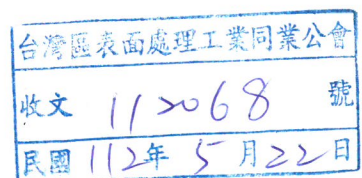 台灣區表面處理工業同業公會
收文 112068 號
民國 112年 5 月 22 日